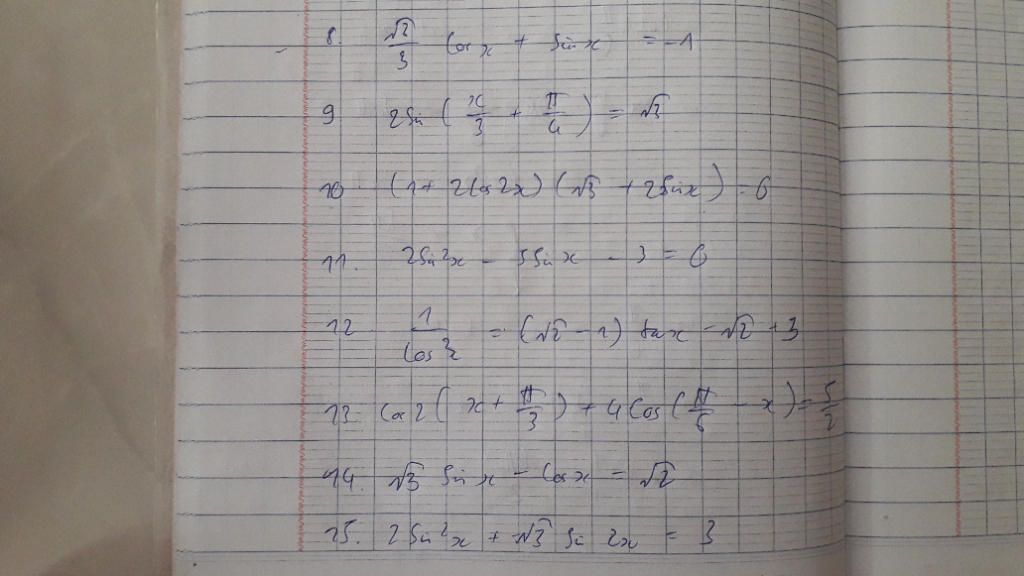 8. √2/3 cos x + sin x = -1
9 2 sin ( x/3 + π/4 ) = √3
10 (1 + 2 cos 2x) (√3 + 2 sin x) = 6
11. 2 sin²x - 5 sin x - 3 = 6
12 1/cos²x = (√2 - 1) tan x - √2 + 3
13. cos 2 ( x + π/3 ) + 4 cos ( π/6 - x ) = 5/2
14. √3 sin x - cos x = √2
15. 2 sin²x + √3 sin 2x = 3